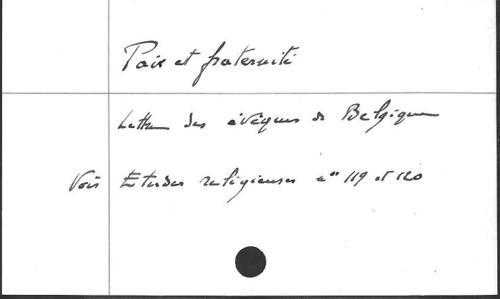 Paix et fraternité
Lettre des évêques de Belgique
Voir Etudes religieuses nos 119 et 120